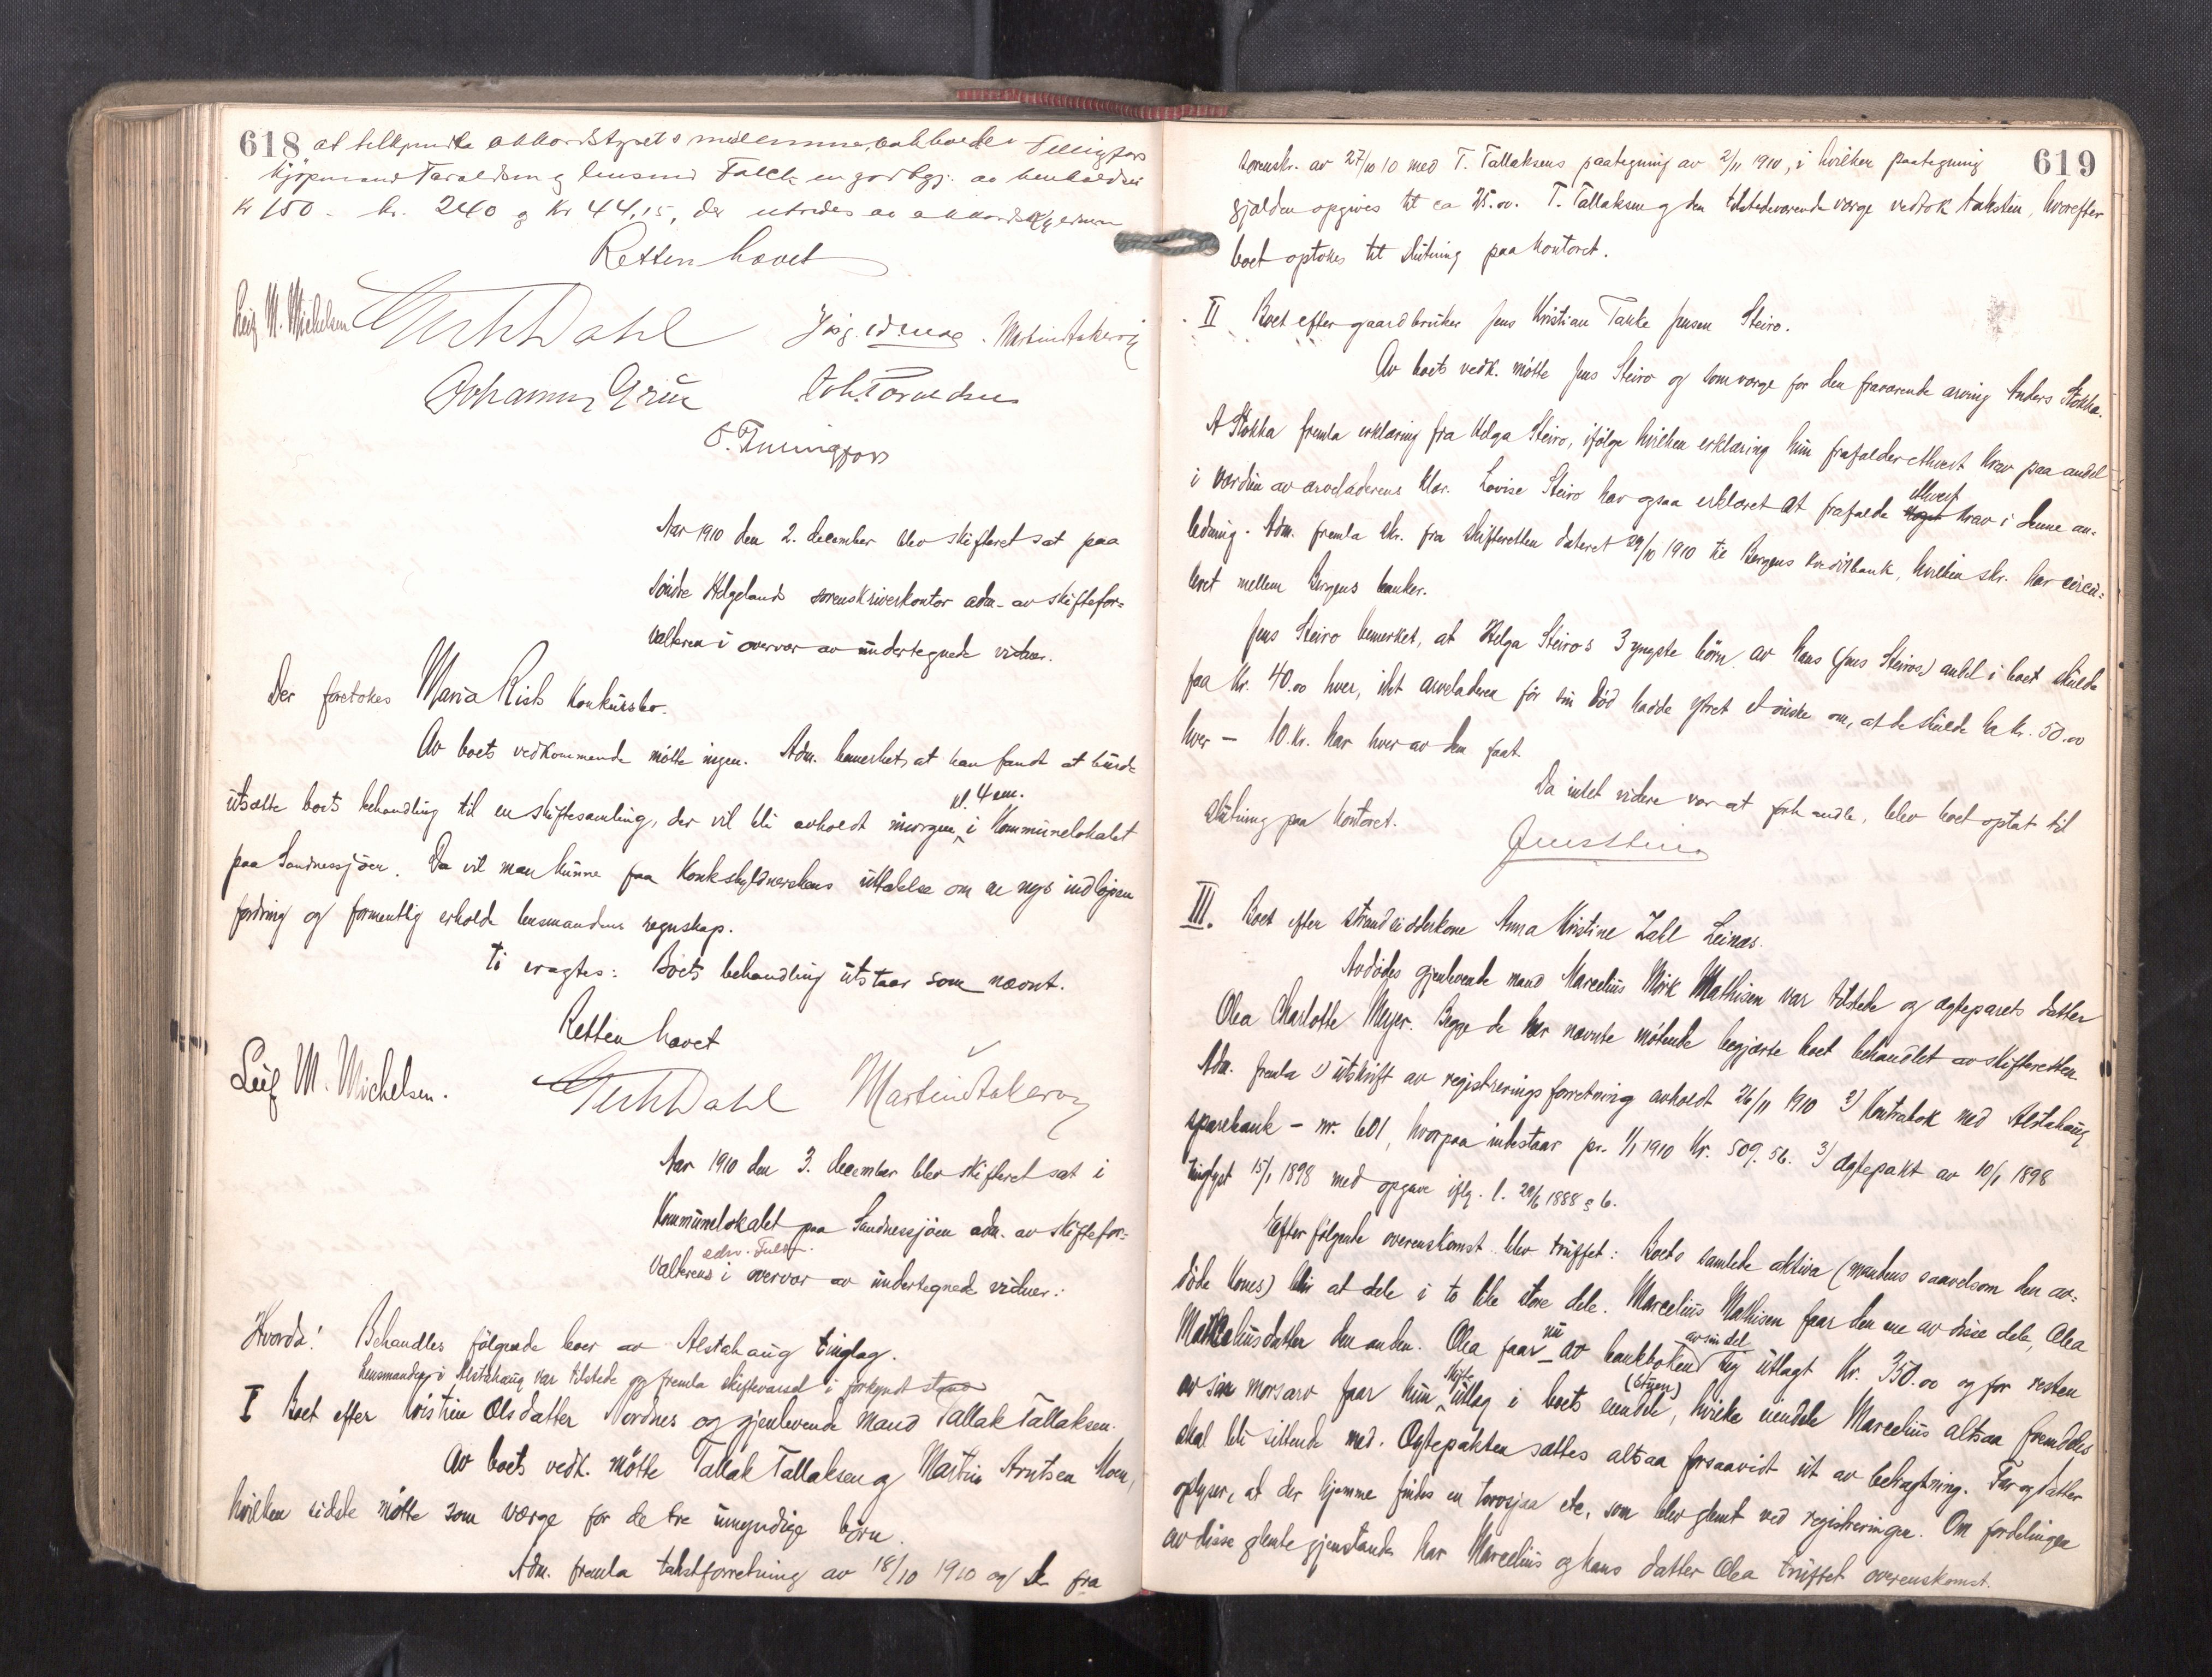 618 at tilkjende akkordstyrets medlemmer,
kjøpmand Taraldsen og lensmd Falch en godtgj. av henholdsvis
kr 150 - kr. 240 og kr 44,15, der utredes av
Retten hævet
Leif M. Michelsen Martin Aakerøy
Johannes Grün Joh. Taraldsen
Aar 1910 den 2. december blev skifteret sat paa
Söndre Helgeland sorenskriverkontor adm. av skiftefor-
valteren i overvær av undertegnede vidner.
Der foretokes Maria Rists konkursbo.
Av boets vedkommende mötte ingen. Adm. bemerket, at han fandt at burde
kl. 4 em.
utsætte boets behandling til en skiftesamling, der vil bli avholdt imorgen i Kommunelokalet
paa Sandnessjöen. Da vil man kunne faa Konkskyldnerskens uttalelse om en nys indløpen
fordring og formentlig erholde lensmandens regnskap.
Ti eragtes: Boets behandling utstaar som nævnt.
Retten hævet
Leif M. Michelsen. Martin Aakerøy
Aar 1910 den 3. december blev skifteret sat i
Kommunelokalet paa Sandnessjöen adm. av skiftefor-
edsv. fuldm.
valterens i overvær av undertegnede vidner:
Hvorda! Behandles følgende boer av Alstahaug tinglag.
Lensmanden i Alstahaug var tilstede og fremla skiftevarsel i forkyndt stand
I Boet efter Kristine Olsdatter Nordnes og gjenlevende mand Tallak Tallaksen.
Av boets vedk. mötte Tallak Tallaksen og Martin Arntsen Moen,
hvilken sidste mötte som værge for de tre umyndige børn.
Adm. fremla takstforretning av 18/10 1910 og skr fra
619
sorenskr. av 27/10 10 med T. Tallaksens paategning av 2/11 1910, i hvilken paategning
gjælden opgives til ca 25.00. T. Tallaksen og den tilstedeværende værge vedtok taksten, hvorefter
boet optokes til slutning paa kontoret.
II Boet efter gaardbruker Jens Kristian Tanke Jensen Steiro.
Av boets vedk. mötte Jens Steiro og som værge for den fraværende arving Anders Stokka.
A Stokka fremla erklæring fra Helga Steiro, ifölge hvilken erklæring hun frafalder ethvert krav paa andel
ethvert
i værdien av arveladerens klær. Lovise Steiro har ogsaa erklæret at frafalde noget krav i denne an-
ledning. Adm. fremla skr. fra skifteretten dateret 29/10 1910 til Bergens Kreditbank, hvilken skr. har circu-
leret mellem Bergens banker.
Jens Steiro bemerket, at Helga Steiro's 3 yngste börn av hans (Jens Steiros) andel i boet skulde
faa kr. 40.00 hver, idet arveladeren för sin död hadde ytret et önske om, at de skulde ha kr. 50.00
hver - 10 kr. har hver av dem faat.
Da intet videre var at forhandle, blev boet optat til
slutning paa kontoret.
Jens Steiro
III. Boet efter strandsidderkone Anna Kristine Zahl Leines.
Avdödes gjenlevende mand Marcelius Mörk Mathisen var tilstede og ægteparets datter
Olea Charlotte Meyer. Begge de her nævnte mötende begjærte boet behandlet av skifteretten.
Adm. fremla 1) utskrift av registreringsforretning avholdt 26/11 1910 2) Kontrabok med Alstahaug
sparebank - nr. 601, hvorpaa indestaar pr. 1/1 1910 kr. 509.56. 3) Ægtepakt av 10/1 1898
tinglyst 15/1 1898 med opgave iflg. l. 29/6 1888 § 6.
Efterfölgende overenskomst blev truffet: Boets samlede aktiva (mandens saavelsom den av-
döde kones) blir at dele i to like store dele. Marcelius Mathisen faar den ene av disse dele, Olea
nu av sin del
Marceliusdatter den anden. Olea faar av bankboken sig utlagt kr. 350.00 og for resten
(Stuen)
av sin morsarv faar hun utlæg i boets eiendele, hvilke eiendele Marcelius altsaa fremdeles
skal bli sittende med. Ægtepakten sættes altsaa forsaavidt ut av betragtning. Far og datter
oplyser, at der hjemme findes en torvsjaa etc. som blev glemt ved registreringen. Om fordelingen
av disse glemte gjenstande har Marcelius og hans datter Olea truffet overenskomst.